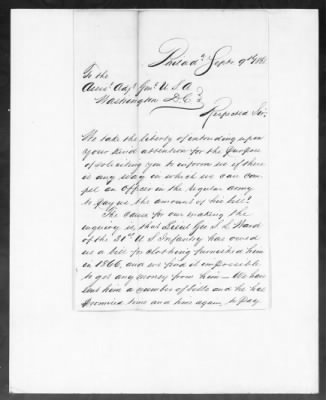 Philad. Septr 9th 186
To the
Assis. Adjt. Genl. U S A
Washington D.C.
Respected Sir;
We take the liberty of intruding upon
your kind attention for the purpose
of soliciting you to inform us if there
is any way in which we can com-
pel an Officer in the regular army
to pay us the amount of his bill?
The cause for our making the
inquiry is, that Lieut Geo S L Ward
of the 31st U S Infantry has owed
us a bill for clothing furnished him
in 1866, and we find it impossible
to get any money from him — We have
sent him a number of bills and he has
promised time and time again, to pay